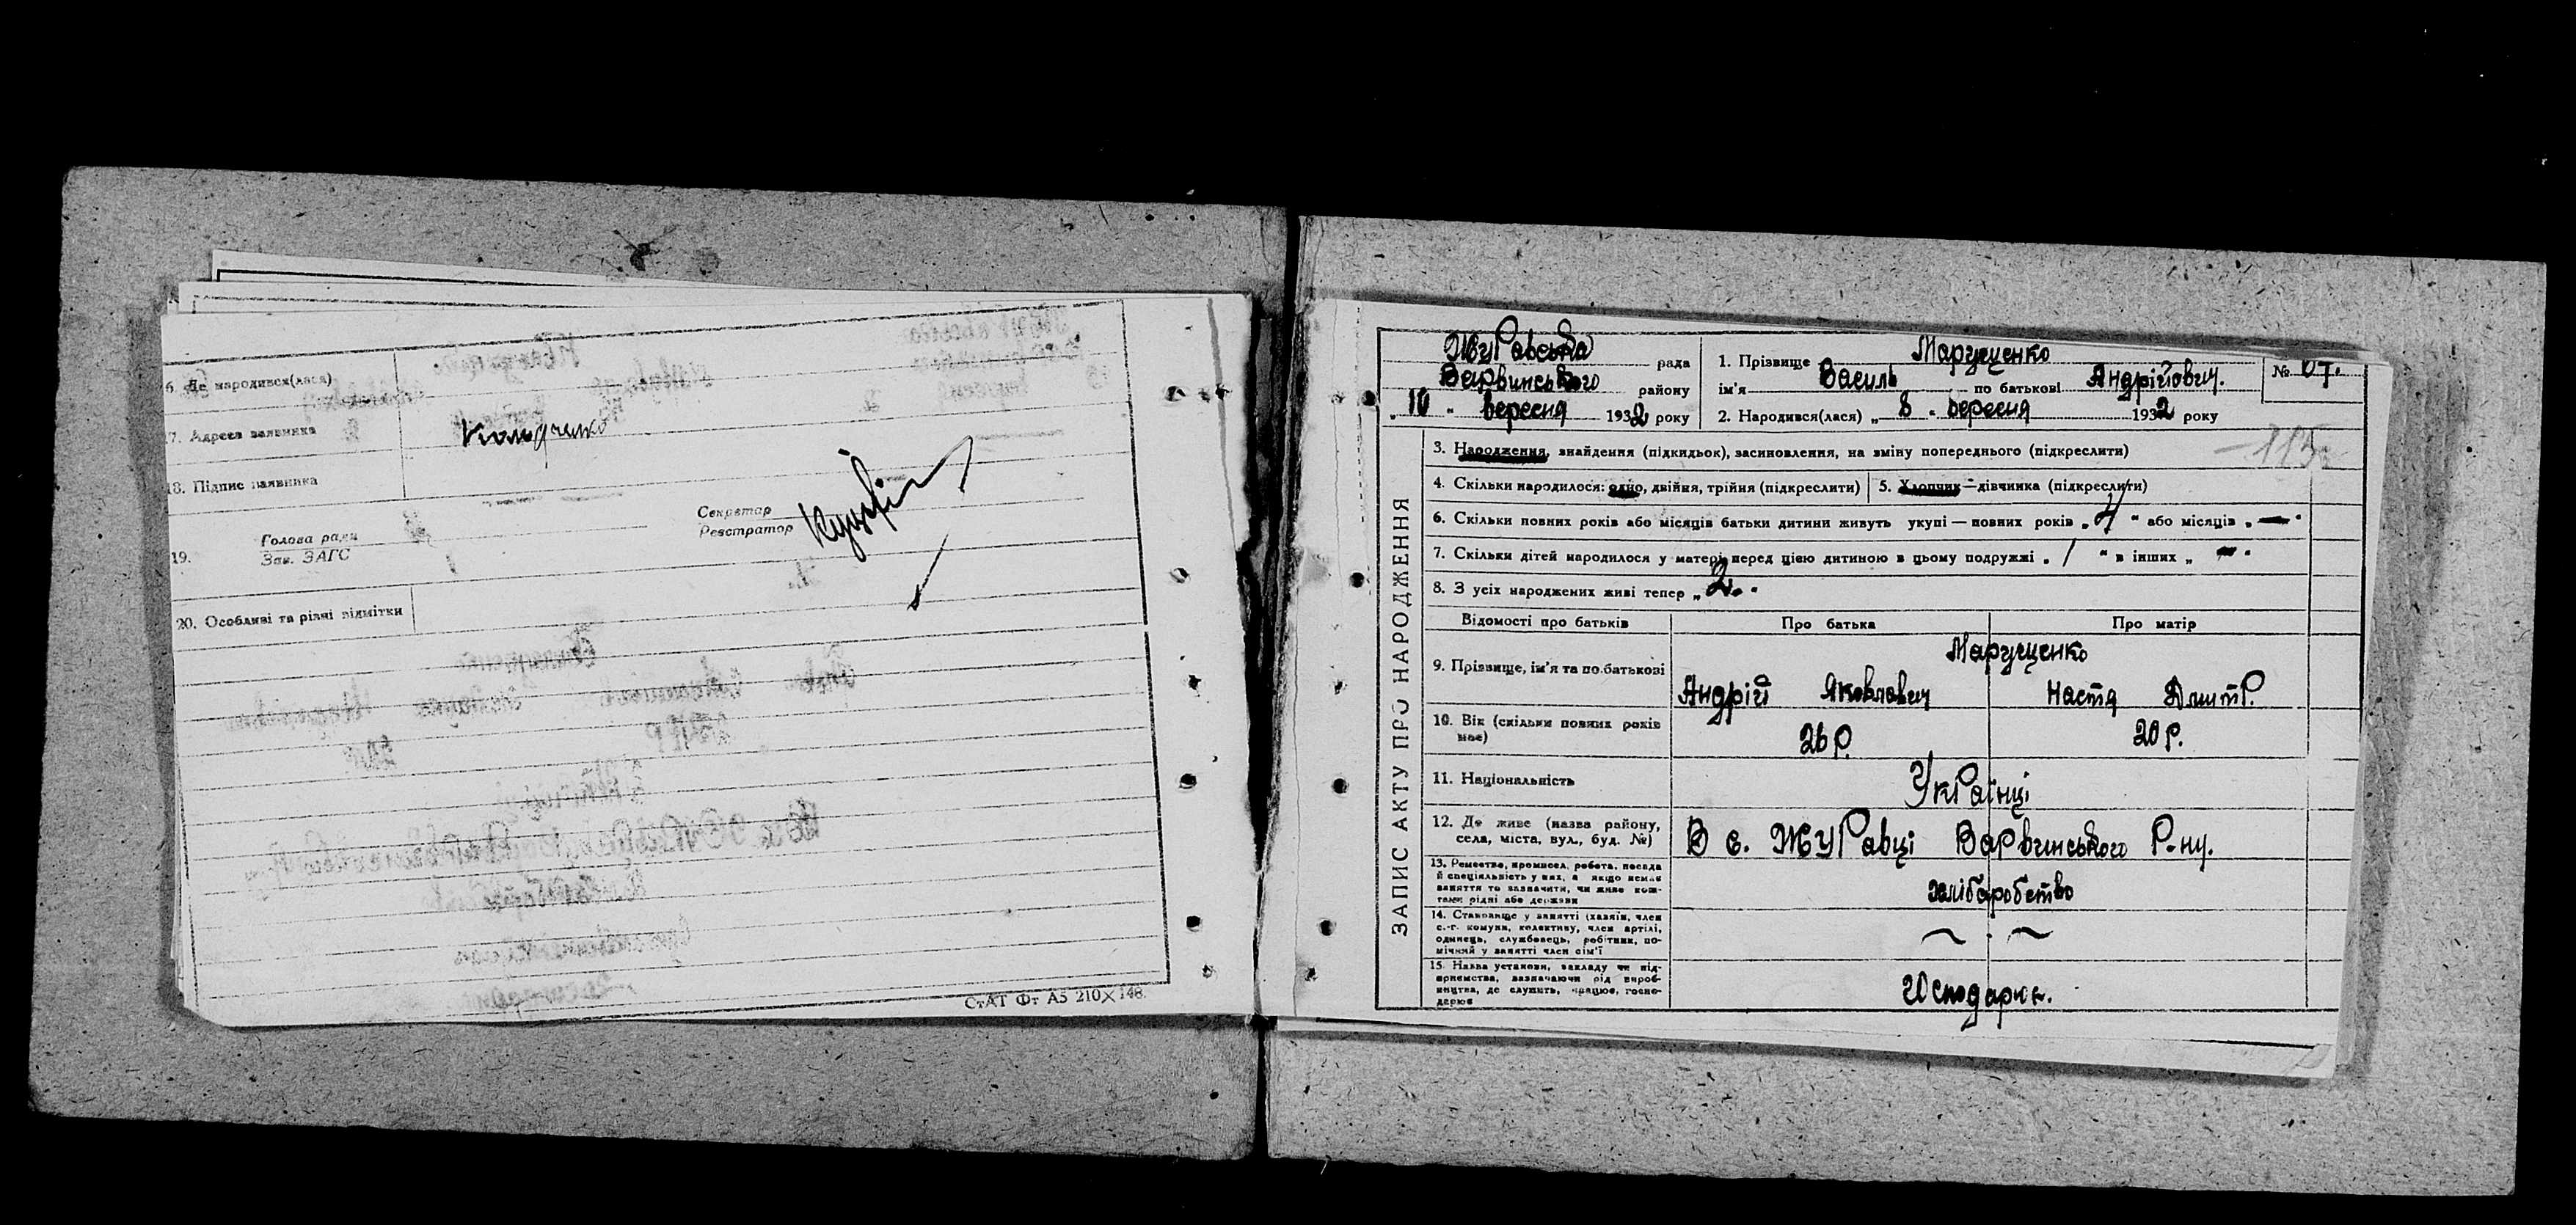 6. Де народився(лася)
17. Адреса заявника
18. Підпис заявника
19. Голова ради
Зав. ЗАГС
Секретар
Реєстратор
20. Особливі та різні відмітки
СтАТ Фт А5 210×148.
ЗАПИС АКТУ ПРО НАРОДЖЕННЯ
Журавська рада
Варвинського району
„10" вересня 1932 року
1. Прізвище Марущенко
ім'я Василь по батькові Андрійович.
2. Народився(лася) „8" вересня 1932 року
№ 67.
3. Народження, знайдення (підкидьок), засиновлення, на зміну попереднього (підкреслити)
115
4. Скільки народилося: одно, двійня, трійня (підкреслити)
5. Хлопчик—дівчинка (підкреслити)
6. Скільки повних років або місяців батьки дитини живуть укупі — повних років „4" або місяців „—"
7. Скільки дітей народилося у матері перед цією дитиною в цьому подружжі „1" в інших „—"
8. З усіх народжених живі тепер „2."
Відомості про батьків
Про батька
Про матір
9. Прізвище, ім'я та по батькові
Марущенко
Андрій Яковлевич
Настя Дмитр.
10. Вік (скільки повних років має)
26 р.
20 р.
11. Національність
Українці
12. Де живе (назва району,
села, міста, вул., буд. №)
В с. Журавці Варвинського Р-ну.
13. Ремество, промисел, робота, посада
й спеціяльність у них, а якщо немає
заняття то зазначити, чи живе кош-
тами рідні або держави
хліборобство
14. Становище у занятті (хазяїн, член
с.-г. комуни, колективу, член артілі,
одинець, службовець, робітник, по-
мічний у занятті член сім'ї
15. Назва установи, закладу чи під-
приємства, зазначаючи рід вироб-
ництва, де служить, працює, госпо-
дарює
Господарюк.